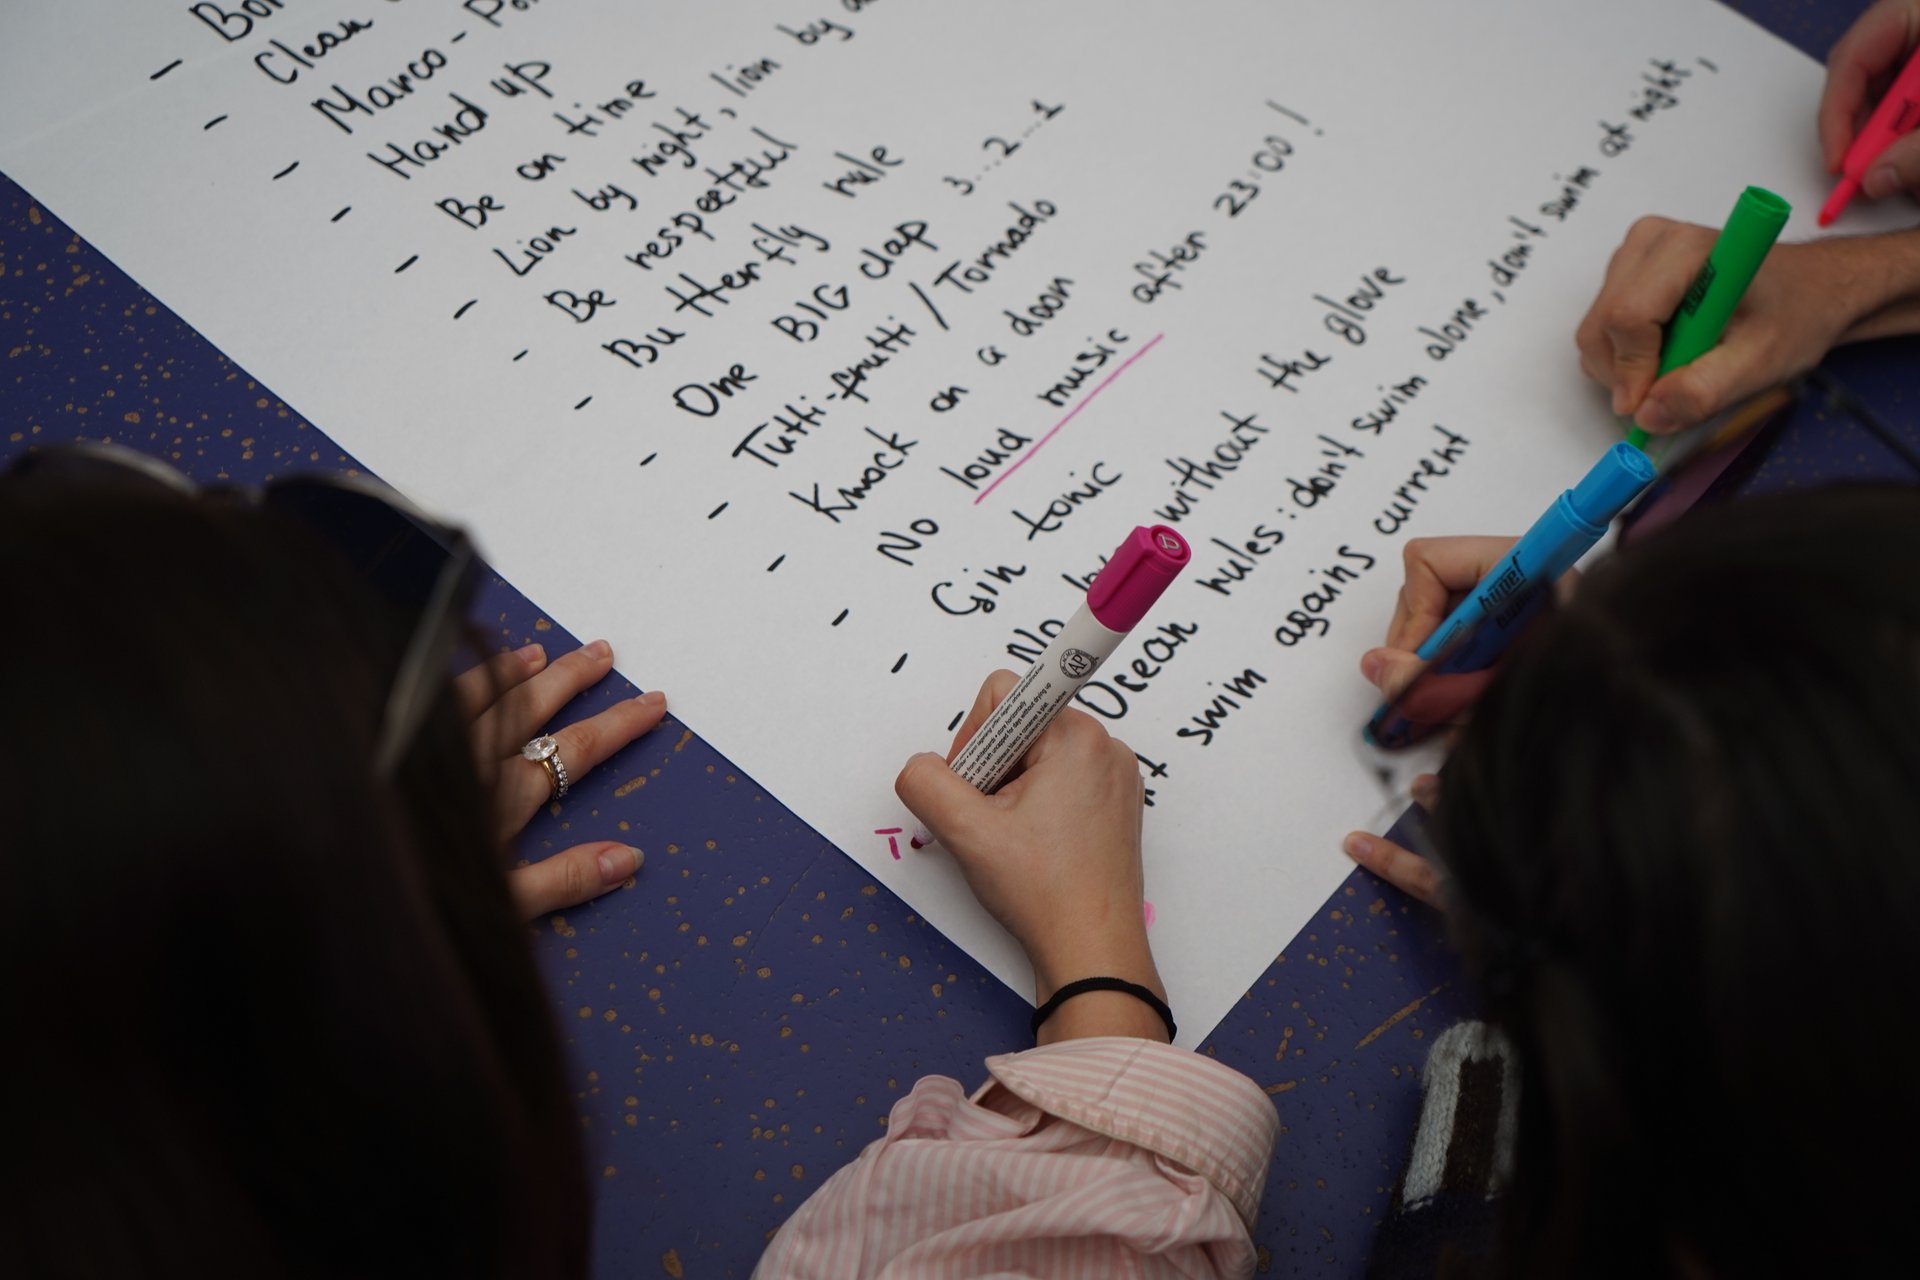 - Clean
- Marco -
- Hand up
- Be on time
- Lion by night, lion by
- Be respectful
- Butterfly rule
- One BIG clap 3...2...1
- Tutti-frutti / Tornado
- Knock on a door
- No loud music after 23:00!
- Gin tonic
- No without the glove
- Ocean rules: don't swim alone, don't swim at night,
swim agains current